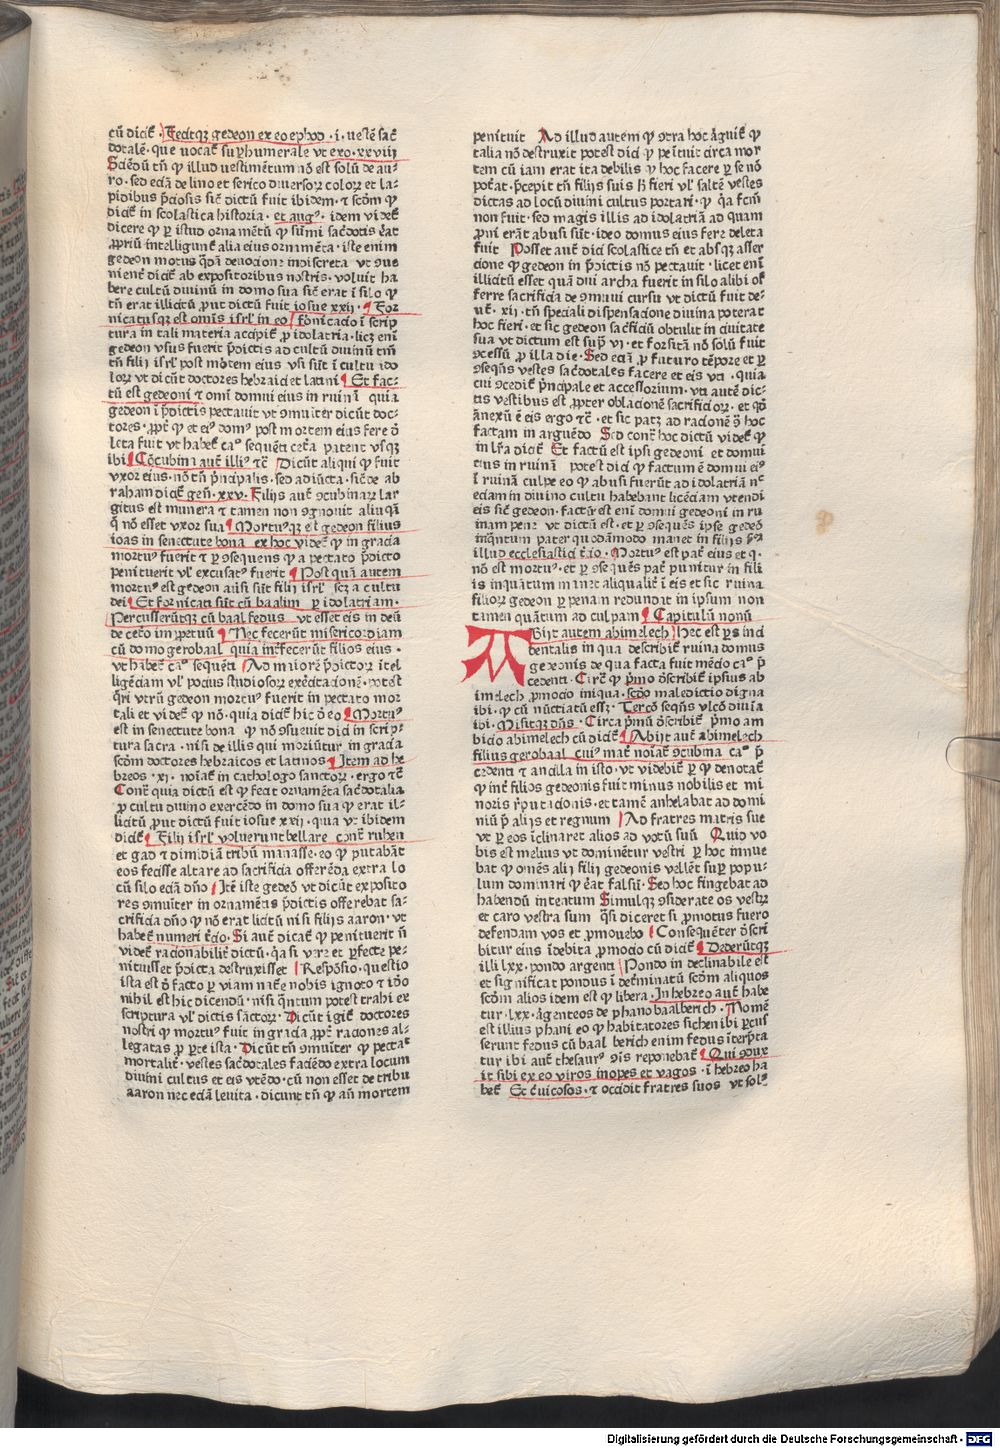 cū dicit̄ · Fecitqꝫ gedeon ex eo ephod · i · uestē sac̄
dotalē · que uocat̄ suꝑhumerale vt exo · xxviii
Sciēdū tn̄ ꝙ illud uestimētum nō est solū de au-
ro · sed eciā de lino et serico diuersoꝝ coloꝝ et la-
pidibus p̄ciosis sic̄ dictū fuit ibidem · ⁊ scd̄m ꝙ
dicit̄ in scolastica historia · et augꝰ · idem videt̄
dicere ꝙ ꝑ istud ornamētū ꝙ sūmi sac̄dotis erat
ꝓpriū intelligunt̄ alia eius ornamēta · iste enim
gedeon motus q̄dā deuocione indiscreta vt ꝯue
nient̄ dicit̄ ab expositoribus nostris · voluit ha
bere cultū diuinū in domo sua sic̄ erat ī silo ꝙ
tn̄ erat illicitū ꝓut dictū fuit iosue xxii · ¶ For
nicatusqꝫ est om̄is isrl̄ in eo fornicacio ī scrip
tura in tali materia accipit̄ ꝓ idolatria · licꝫ eni
gedeon vsus fuerit p̄dictis ad cultū diuinū tm̄
tn̄ filii isrl̄ post mortem eius vsi sūt ī cultu ido
loꝝ vt dicūt doctores hebraici et latini ¶ Et fac-
tū est gedeoni ⁊ omī domui eius in ruinā quia
gedeon ī p̄dictis peccauit vt ꝯmuiter dicūt doc-
tores · ꝓpt̄ ꝙ et eiꝰ domꝰ post mortem eius fere d̄
leta fuit vt habet̄ caꝰ sequēti cetera patent vsqꝫ
ibi ¶ Cōcubina aut̄ illiꝰ ⁊c̄ Dicūt aliqui ꝙ fuit
vxor eius · nō tn̄ p̄ncipalis · sed adiūcta · sic̄ de ab
raham dicit̄ gen̄ · xxv · Filijs aut̄ ꝯcubinaꝝ lar
gitus est munera ⁊ tamen non ꝯgnouit aliquā
q̄ nō esset vxor sua ¶ Mortuꝰqꝫ est gedeon filius
ioas in senectute bona ex hoc videt̄ ꝙ in gracia
mortuꝰ fuerit ⁊ ꝑ ꝯsequens ꝙ a peccato p̄dicto
penituerit vl̄ excusatꝰ fuerit ¶ Postquā autem
mortuꝰ est gedeon auersi sūt filii isrl̄ scꝫ a cultu
dei ¶ Et fornicati sūt cū baalim ꝑ idolatriam ·
Percusserūtqꝫ cū baal fedus vt esset eis in deū
de cet̄o imꝑpetuū ¶ Nec fecerūt misericordiam
cū domo gerobaal quia int̄fecerūt filios eius ·
vt habet̄ caꝰ sequēti Ad maiorē p̄dictoꝝ itel
ligēciam vl̄ pocius studiosoꝝ exercitacionē · potest
q̄ri vtrū gedeon mortuꝰ fuerit in peccato mor
tali et videt̄ ꝙ nō · quia dicit̄ hic d̄ eo ¶ Mortuꝰ
est in senectute bona ꝙ nō ꝯsueuit dici in scrip-
tura sacra · nisi de illis qui moriūtur in gracia
scd̄m doctores hebraicos et latinos ¶ Item ad he
breos · xi · noīat̄ in cathologo sanctoꝝ · ergo ⁊c̄
Cont̄ quia dictū est ꝙ fecit ornamēta sac̄dotalia
ꝓ cultu diuino exercēdo in domo sua ꝙ erat il-
licitū ꝓut dictū fuit iosue xxii · qua vt ibidem
dicit̄ ¶ Filii isrl̄ voluerunt bellare cont̄ ruben
et gad ⁊ dimidiā tribū manasse · eo ꝙ putabāt
eos fecisse altare ad sacrificia offerēda extra lo
cū silo eciā dn̄o Itē iste gedeō vt dicūt exposito
res ꝯmuiter in ornamētis p̄dictis offerebat sa-
crificia dn̄o ꝙ nō erat licitū nisi filijs aaron · vt
habet̄ numeri t̄cio · Si aut̄ dicat̄ ꝙ penituerit n̄
videt̄ racionabilit̄ dictū · q̄a si vere et ꝑfecte pe-
nituisset p̄dicta destruxisset Respōsio · questio
ista est d̄ facto ꝑ viam nat̄e nobis ignoto ⁊ idō
nihil est hic dicendū · nisi q̄ntum potest trahi ex
scriptura vl̄ dictis sāctoꝝ · Dicūt igit̄ doctores
nostri ꝙ mortuꝰ fuit in gracia · ꝓpt̄ raciones al-
legatas ꝓ ꝑte ista · Dicūt tn̄ ꝯmuiter ꝙ peccat̄
mortalit̄ · vestes sac̄dotales faciēdo extra locum
diuini cultus et eis vtēdo · cū non esset de tribu
aaron nec eciā leuita · dicunt tn̄ ꝙ an̄ mortem
penituit Ad illud autem ꝙ ꝯtra hoc arguit̄ ꝙ
talia nō destruxit potest dici ꝙ penituit circa mor
tem cū iam erat ita debilis ꝙ hoc facere ꝑ se nō
pot̄at · p̄cepit tn̄ filijs suis h̄ fieri vl̄ saltē vestes
dictas ad locū diuini cultus portari · ꝙ q̄a fcm̄
non fuit · sed magis illis ad idolatriā ad quam
ꝓni erāt abusi sūt · ideo domus eius fere deleta
fuit Posset aut̄ dici scolastice tn̄ et absqꝫ asser
cione ꝙ gedeon in p̄dictis nō peccauit · licet enī
illicitū esset quā diu archa fuerit in silo alibi of
ferre sacrificia de ꝯmuni cursu vt dictū fuit de-
ut̄ · xii · tn̄ speciali dispensacione diuina poterat
hoc fieri · et sic gedeon sac̄ficiū obtulit in ciuitate
sua vt dictum est sup̄ vi · et forsitā nō solū fuit
ꝯcessū ꝓ illa die · Sed eciā ꝓ futuro tēpore et ꝑ
ꝯseq̄ns vestes sac̄dotales facere et eis vti · quia
cui ꝯcedit̄ p̄ncipale et accessorium · vti autē dic-
tis vestibus est ꝓpter oblacionē sacrificioꝝ · et qd̄
ānexū ē eis ergo ⁊c̄ · et sic patꝫ ad racionē ꝯ̄ hoc
factam in arguēdo Sed cont̄ hoc dictū videt̄ ꝙ
in lr̄a dicit̄ Et factū est ipsi gedeoni et domui
eius in ruinā potest dici ꝙ factum ē domui eiꝰ
ī ruinā culpe eo ꝙ abusi fuerūt ad idolatriā nc̄
eciam in diuino cultu habebant licēciam vtendi
eis sic̄ gedeon · factū est enī domui gedeoni in ru
inam pene vt dictū est · et ꝑ ꝯsequēs ipse gedeō
inq̄ntum pater quodāmodo manet in filijs
illud ecclesiastici t̄cio · Mortuꝰ est pat̄ eius et q̄·
nō est mortuꝰ · et ꝑ ꝯsequēs pat̄ punitur in fili
is inquātum manet aliqualit̄ ī eis et sic ruina
filioꝝ gedeon ꝑ penam redundat in ipsum non
tamen quātum ad culpam ¶ Capitulū nonū
Abijt autem abimelech Hec est ꝑs inci
dentalis in qua describit̄ ruina domus
gedeonis de qua facta fuit mēcio caꝰ p̄
cedenti · Circa ꝙ pͥmo d̄scribit̄ ipsius ab
imelech ꝓmocio iniqua · scd̄o maledictio digna
ibi · ꝙ cū nūctiatū essꝫ · Tercō seq̄ns vlcō diuīa
ibi · Misitqꝫ dn̄s · Circa pͥmū d̄scribit̄ pͥmo am
bicio abimelech cū dicit̄ ¶ Abijt aut̄ abimelech
filius gerobaal cuiꝰ mat̄ noīat̄ ꝯcubina caꝰ p̄
cedenti ⁊ ancilla in isto · vt videbit̄ ꝑ ꝙ denotat̄
ꝙ int̄ filios gedeonis fuit minus nobilis et mi
noris reputacionis · et tamē anhelabat ad domi
niū p̄ alijs et regnum Ad fratres matris sue
vt ꝑ eos īclinaret alios ad votū suū Quid vo
bis est melius vt dominētur vestri ꝑ hoc innue
bat ꝙ omēs alij filij gedeonis vellēt suꝑ popu-
lum dominari ꝙ erat falsū · Sed hoc fingebat ad
habendū intentum Simulqꝫ ꝯsiderate os vestꝝ
et caro vestra sum q̄si diceret si ꝓmotus fuero
defendam vos et ꝓmouebo Consequēter d̄scri
bitur eius īdebita ꝓmocio cū dicit̄ ¶ Dederūtqꝫ
illi lxx · pondo argenti Pondo in declinabile est
et significat pondus ī det̄minatū scd̄m aliquos
scd̄m alios idem est ꝙ libera · In hebreo aut̄ habe
tur · lxx · argenteos de phano baalberich · Nomē
est illius phani eo ꝙ habitatores sichen ibi ꝑcus
serunt fedus cū baal berich enim fedus īterp̄ta
tur ibi aut̄ thesaurꝰ ꝯis reponebat̄ ¶ Qui ꝯdux
it sibi ex eo viros inopes et vagos · ī hebreo ha
bet̄ Et · ⁊ occidit fratres suos vt
Digitalisierung gefördert durch die Deutsche Forschungsgemeinschaft - DFG